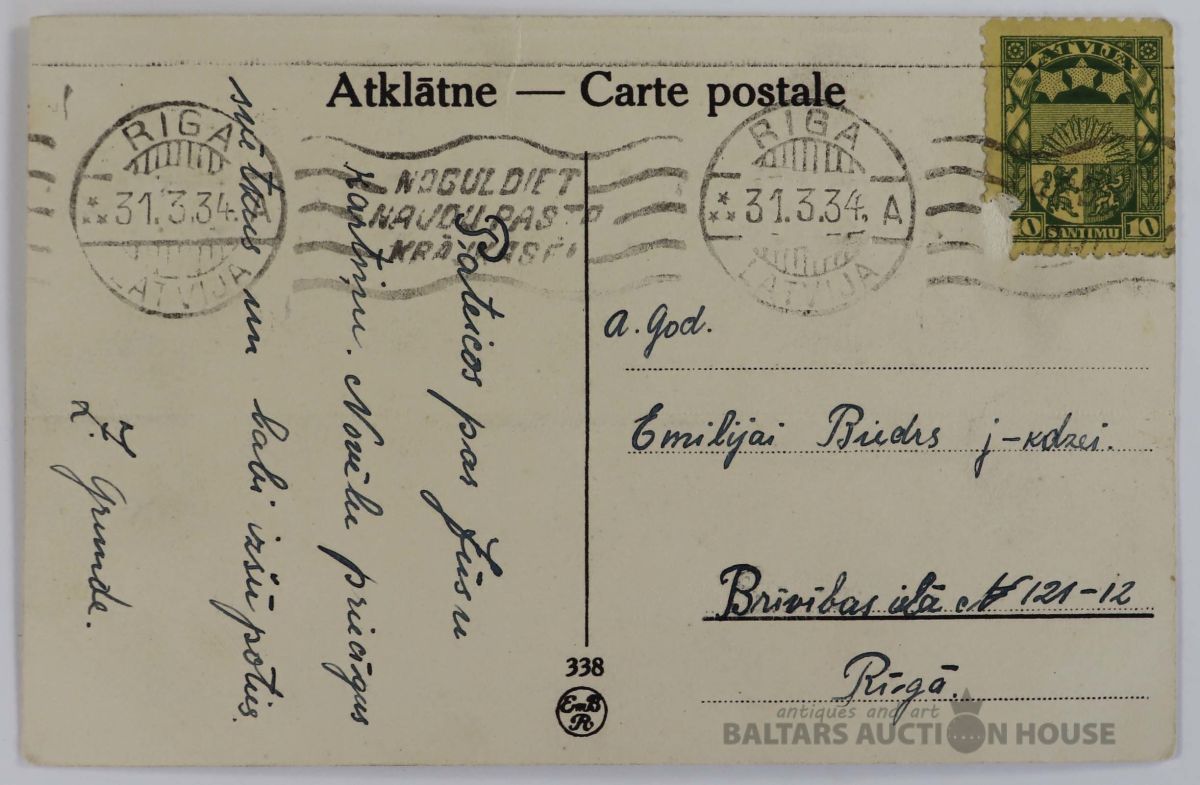 Atklātne — Carte postale
RIGA
31.3.34.
LATVIJA
NOGULDIET
NAUDU PASTA
KRĀJKASĒ!
RIGA
31.3.34. A
LATVIJA
LATVIJA
10 SANTIMU 10
Pateicos par Jūsu
kartiņu. Novēlu priecīgus
svētkus un labi izšūpoties.
Z. Grunde.
A. God.
Emilijai Biedrs j-kdzei.
Brīvības ielā № 121-12
Rīgā.
338
EmB
R
antiques and art
BALTARS AUCTION HOUSE